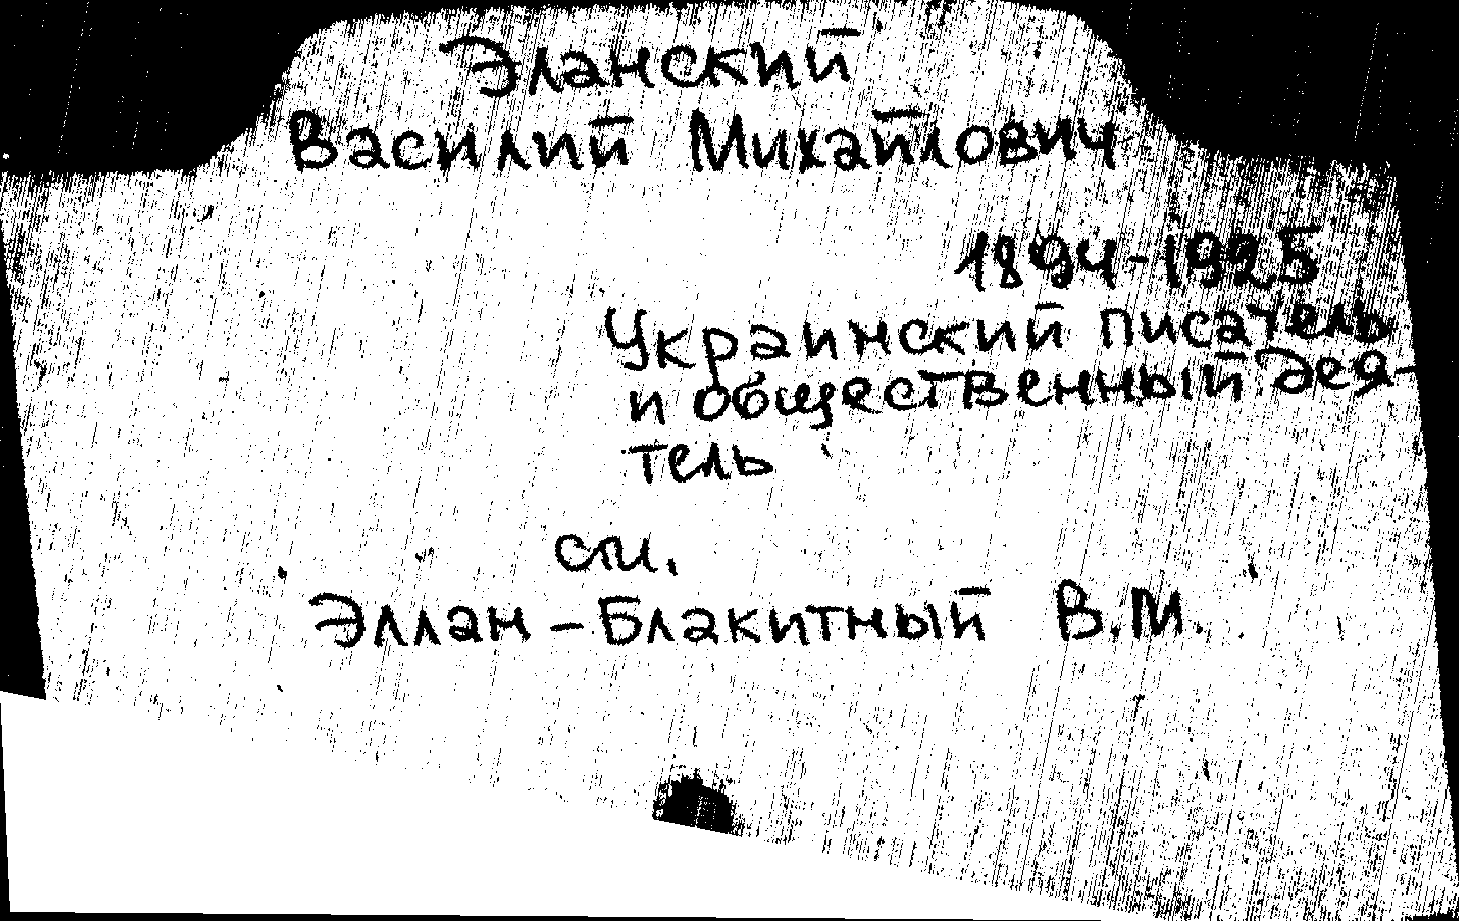 Эланский
Василий Михайлович
1894-1925
Украинский писатель
и общественный дея-
тель
см.
Эллан-Блакитный В.М.